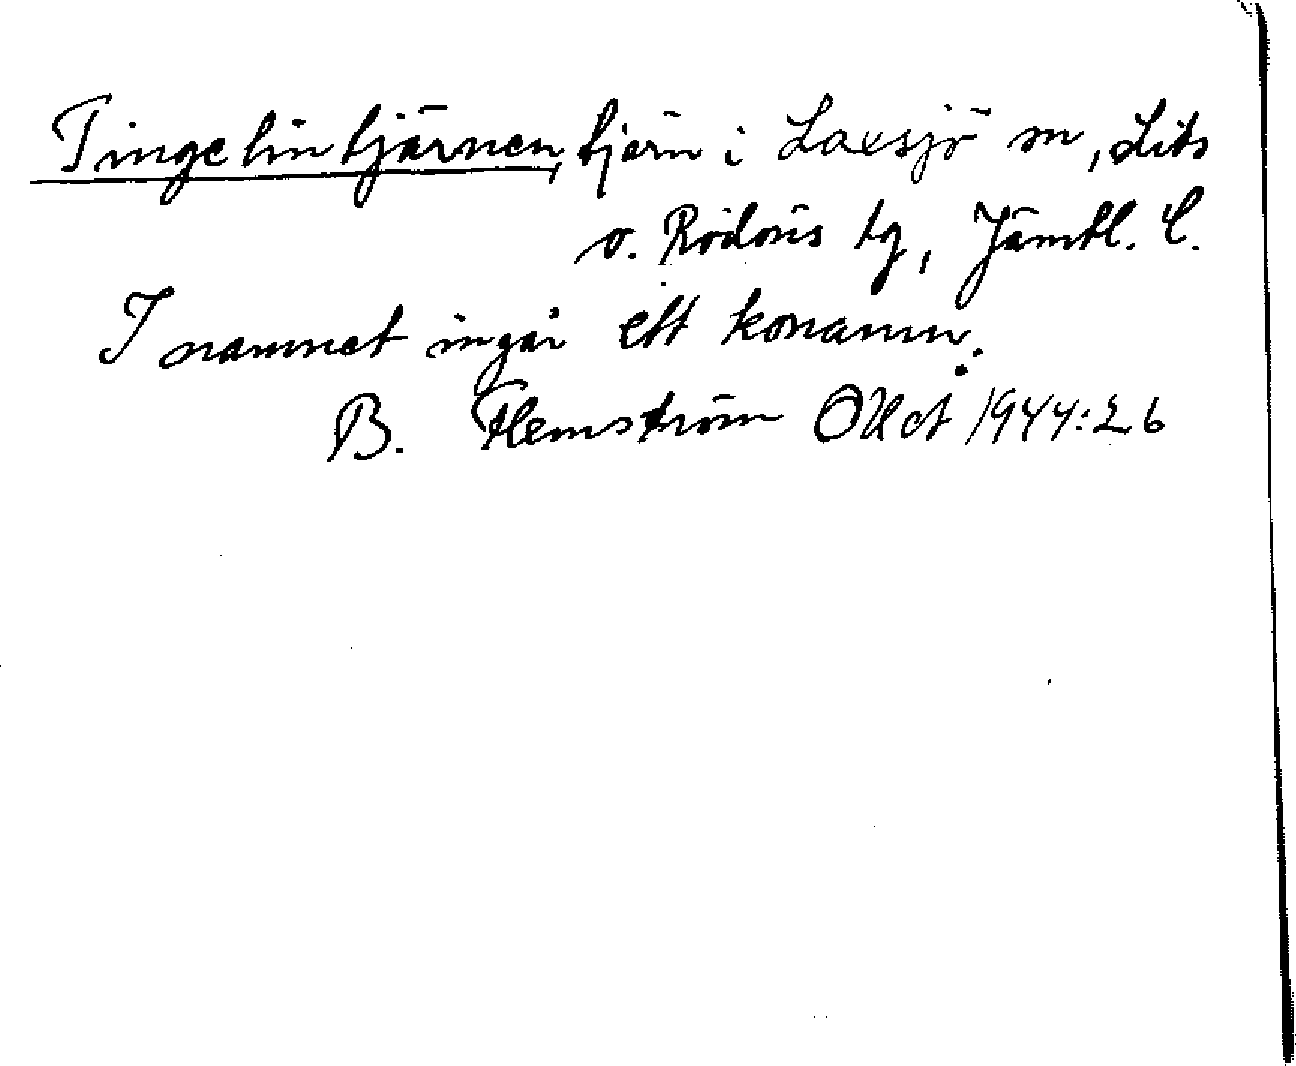 Tingelintjärnen, tjärn i Laxsjö sn, Lits
o. Rödöns tg, Jämtl. l.
I namnet ingår ett konamn.
B. Flemström OUot 1944:26